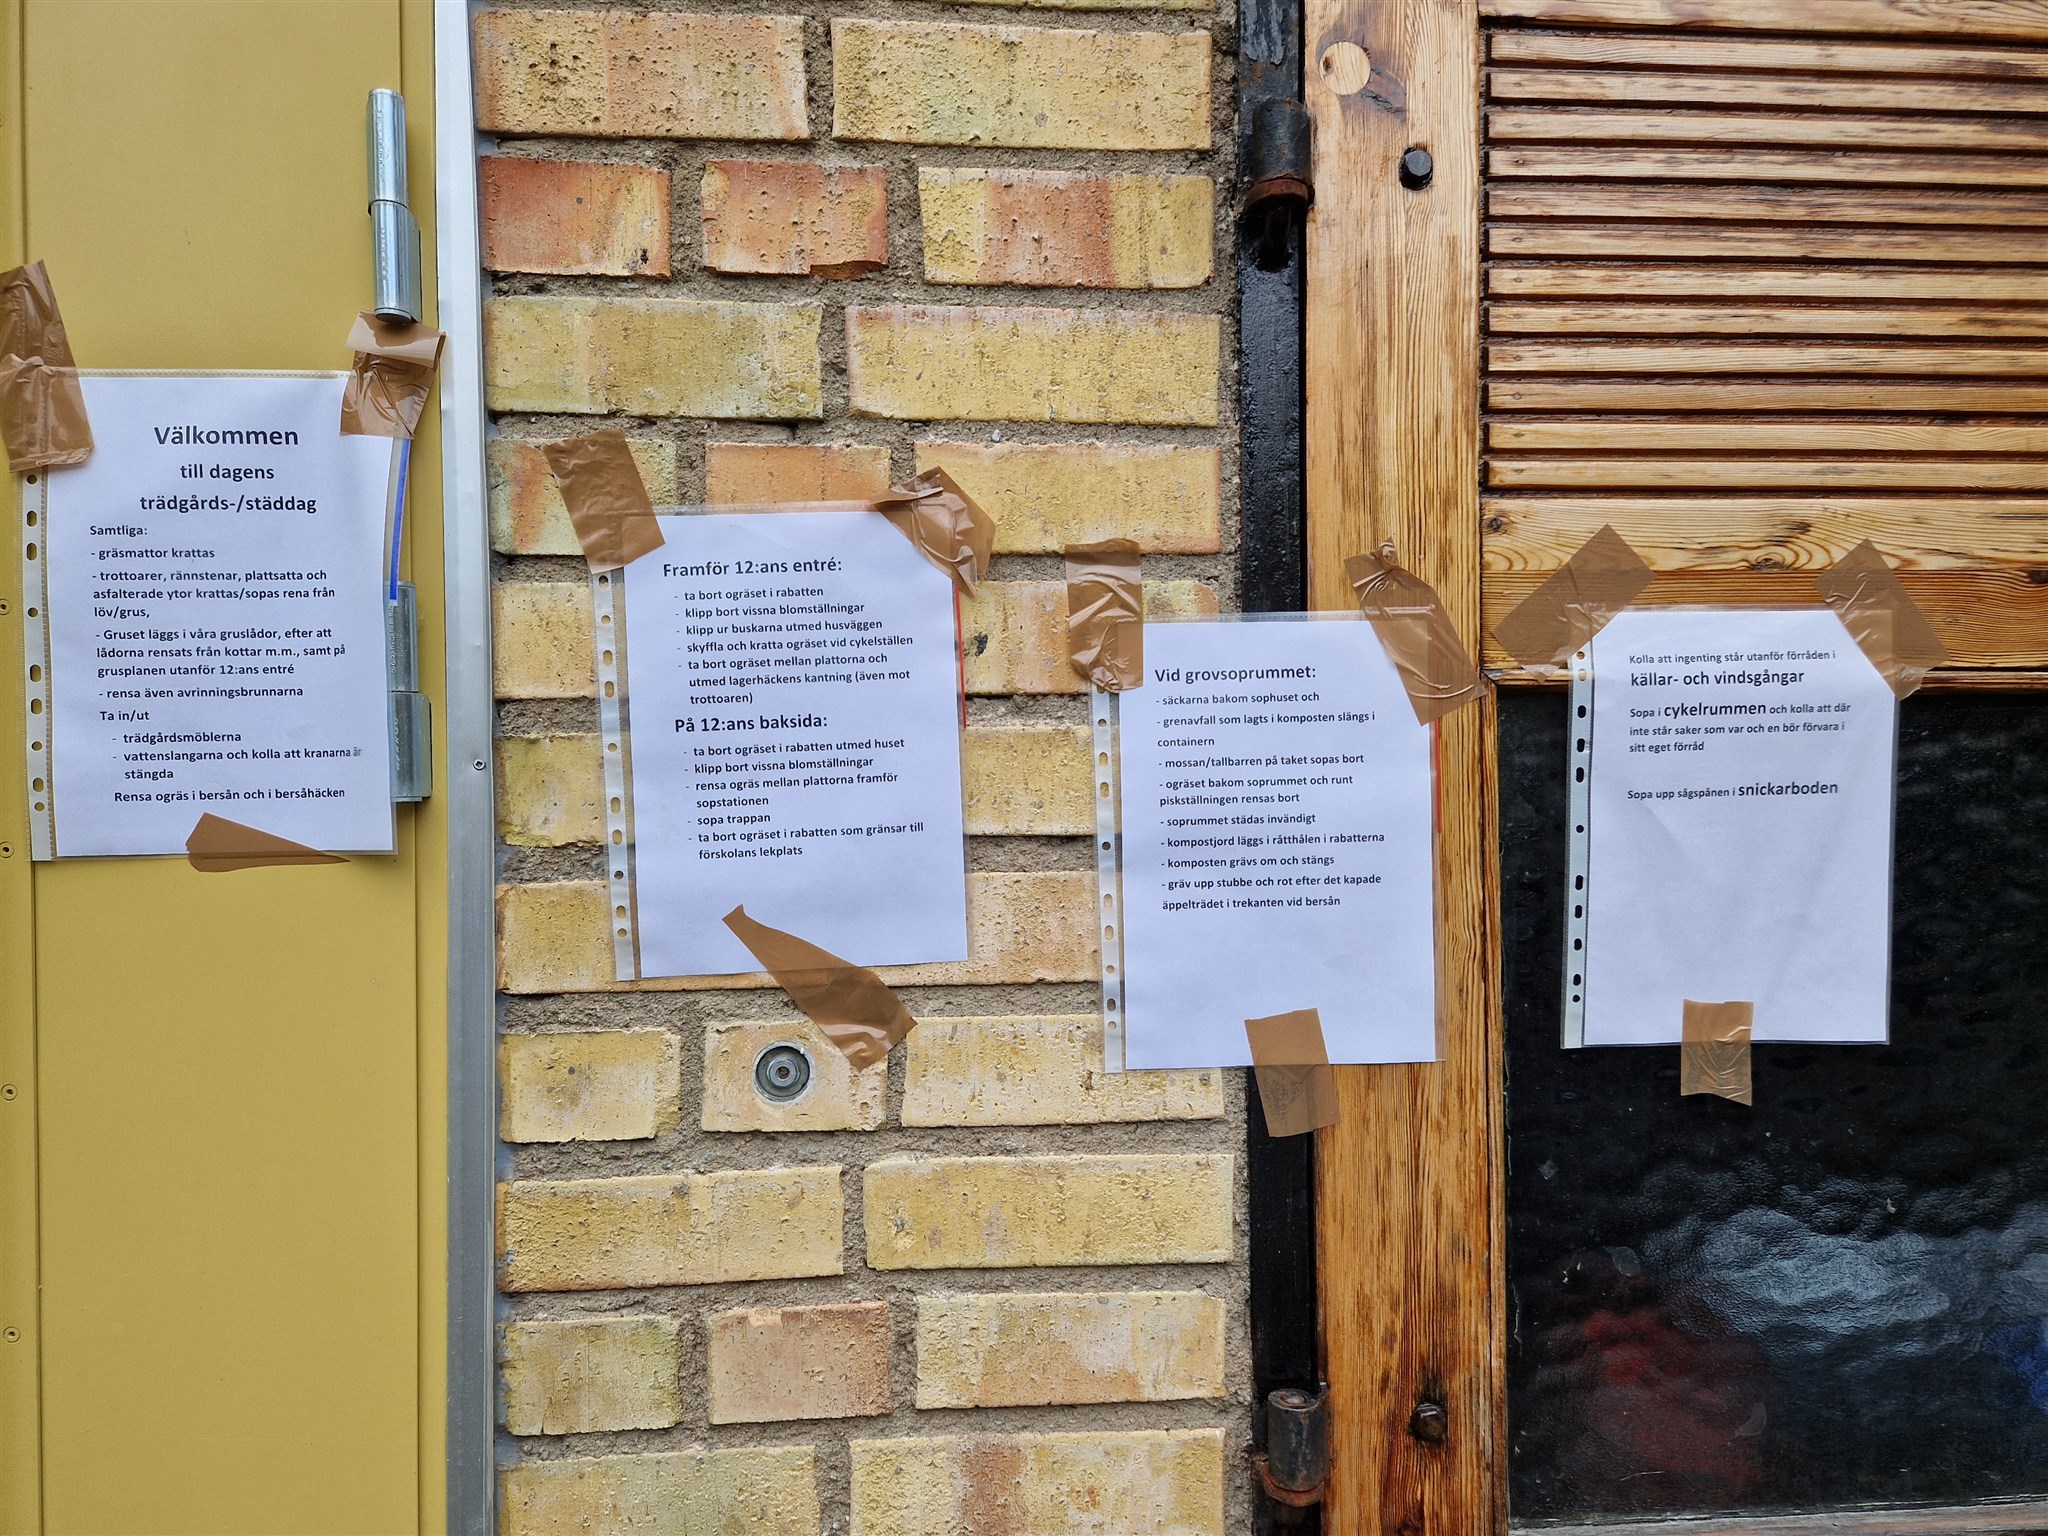 Välkommen
till dagens
trädgårds-/städdag
Samtliga:
- gräsmattor krattas
- trottoarer, rännstenar, plattsatta och
asfalterade ytor krattas/sopas rena från
löv/grus,
- Gruset läggs i våra gruslådor, efter att
lådorna rensats från kottar m.m., samt på
grusplanen utanför 12:ans entré
- rensa även avrinningsbrunnarna
Ta in/ut
- trädgårdsmöblerna
- vattenslangarna och kolla att kranarna är
stängda
Rensa ogräs i bersån och i bersåhäcken
Framför 12:ans entré:
- ta bort ogräset i rabatten
- klipp bort vissna blomställningar
- klipp ur buskarna utmed husväggen
- skyffla och kratta ogräset vid cykelställen
- ta bort ogräset mellan plattorna och
utmed lagerhäckens kantning (även mot
trottoaren)
På 12:ans baksida:
- ta bort ogräset i rabatten utmed huset
- klipp bort vissna blomställningar
- rensa ogräs mellan plattorna framför
sopstationen
- sopa trappan
- ta bort ogräset i rabatten som gränsar till
förskolans lekplats
Vid grovsoprummet:
- säckarna bakom sophuset och
- grenavfall som lagts i komposten slängs i
containern
- mossan/tallbarren på taket sopas bort
- ogräset bakom soprummet och runt
piskställningen rensas bort
- soprummet städas invändigt
- kompostjord läggs i råtthålen i rabatterna
- komposten grävs om och stängs
- gräv upp stubbe och rot efter det kapade
äppelträdet i trekanten vid bersån
Kolla att ingenting står utanför förråden i
källar- och vindsgångar
Sopa i cykelrummen och kolla att där
inte står saker som var och en bör förvara i
sitt eget förråd
Sopa upp sågspånen i snickarboden